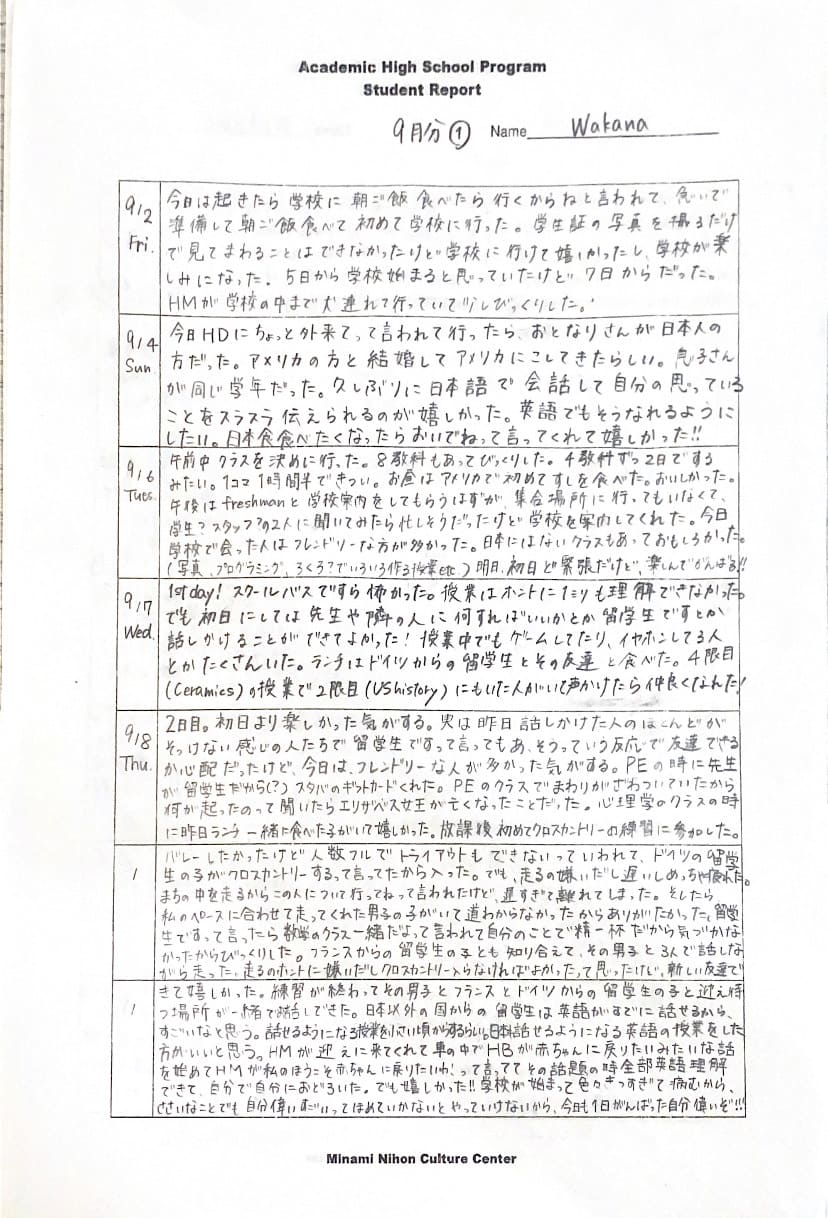 Academic High School Program
Student Report
9月分① Name Wakana
9/2 Fri.
今日は起きたら学校に朝ご飯食べたら行くからねと言われて、急いで
準備して朝ご飯食べて初めて学校に行った。学生証の写真を撮るだけ
で見てまわることはできなかったけど学校に行けて嬉しかったし、学校が楽
しみになった。5日から学校始まると思っていたけど7日からだった。
HMが学校の中まで犬連れて行っていて少しびっくりした。
9/4 Sun.
今日HDにちょっと外来てって言われて行ったら、おとなりさんが日本人の
方だった。アメリカの方と結婚してアメリカにこしてきたらしい。息子さん
が同じ学年だった。久しぶりに日本語で会話して自分の思っている
ことをスラスラ伝えられるのが嬉しかった。英語でもそうなれるように
したい。日本食食べたくなったらおいでねって言ってくれて嬉しかった!!
9/6 Tues.
午前中クラスを決めに行った。8教科もあってびっくりした。4教科ずつ2日でする
みたい。1コマ1時間半できつい。お昼はアメリカで初めてすしを食べた。おいしかった。
午後はfreshmanと学校案内をしてもらうはずが、集合場所に行ってもいなくて、
学生?スタッフ?の2人に聞いてみたら忙しそうだったけど学校を案内してくれた。今日
学校で会った人はフレンドリーな方が多かった。日本にはないクラスもあっておもしろかった。
(写真、プログラミング、ろくろ?でいろいろ作る授業etc) 明日、初日ど緊張だけど、楽しんでがんばる!!
9/7 Wed.
1st day! スクールバスですら怖かった。授業はホントに1ミリも理解できなかった。
でも初日にしては先生や隣の人に何すればいいかとか留学生ですとか
話しかけることができてよかった!授業中でもゲームしてたり、イヤホンしてる人
とかたくさんいた。ランチはドイツからの留学生とその友達と食べた。4限目
(Ceramics)の授業で2限目(UShistory)にもいた人がいて声かけたら仲良くなれた!
9/8 Thu.
2日目。初日より楽しかった気がする。実は昨日話しかけた人のほとんどが
そっけない感じの人たちで留学生ですって言ってもあ、そうっていう反応で友達できる
か心配だったけど、今日は、フレンドリーな人が多かった気がする。PEの時に先生
が留学生だから(?)スタバのギフトカードくれた。PEのクラスでまわりがざわついていたから
何が起ったのって聞いたらエリザベス女王が亡くなったことだった。心理学のクラスの時
に昨日ランチ一緒に食べた子がいて嬉しかった。放課後初めてクロスカントリーの練習に参加した。
バレーしたかったけど人数フルでトライアウトもできないっていわれて、ドイツの留学
生の子がクロスカントリーするって言ってたから入った。でも、走るの嫌いだし遅いしめっちゃ疲れた。
まちの中を走るからこの人について行ってねって言われたけど、遅すぎて離れてしまった。そしたら
私のペースに合わせて走ってくれた男子の子がいて道わからなかったからありがたかった。留学
生ですって言ったら数学のクラス一緒だよって言われて自分のことで精一杯だから気づかな
かったからびっくりした。フランスからの留学生の子とも知り合えて、その男子と3人で話しな
がら走った。走るのホントに嫌いだしクロスカントリー入らなければよかったって思ったけど、新しい友達で
きて嬉しかった。練習が終わってその男子とフランスとドイツからの留学生の子と迎え待
つ場所が一緒で対話してきた。日本以外の国からの留学生は英語がすでに話せるから、
すごいなと思う。話せるようになる授業を小さい頃からするらしい。日本も話せるようになる英語の授業をした
方がいいと思う。HMが迎えに来てくれて車の中でHBが赤ちゃんに戻りたいみたいな話
を始めてHMが私のほうこそ赤ちゃんに戻りたいわ!って言っててその話題の時全部英語理解
できて、自分で自分におどろいた。でも嬉しかった!!学校が始まって色々きつすぎて病むから、
ささいなことでも自分偉いすごいってほめていかないとやっていけないから、今日も1日がんばった自分偉いぞ!!!
Minami Nihon Culture Center